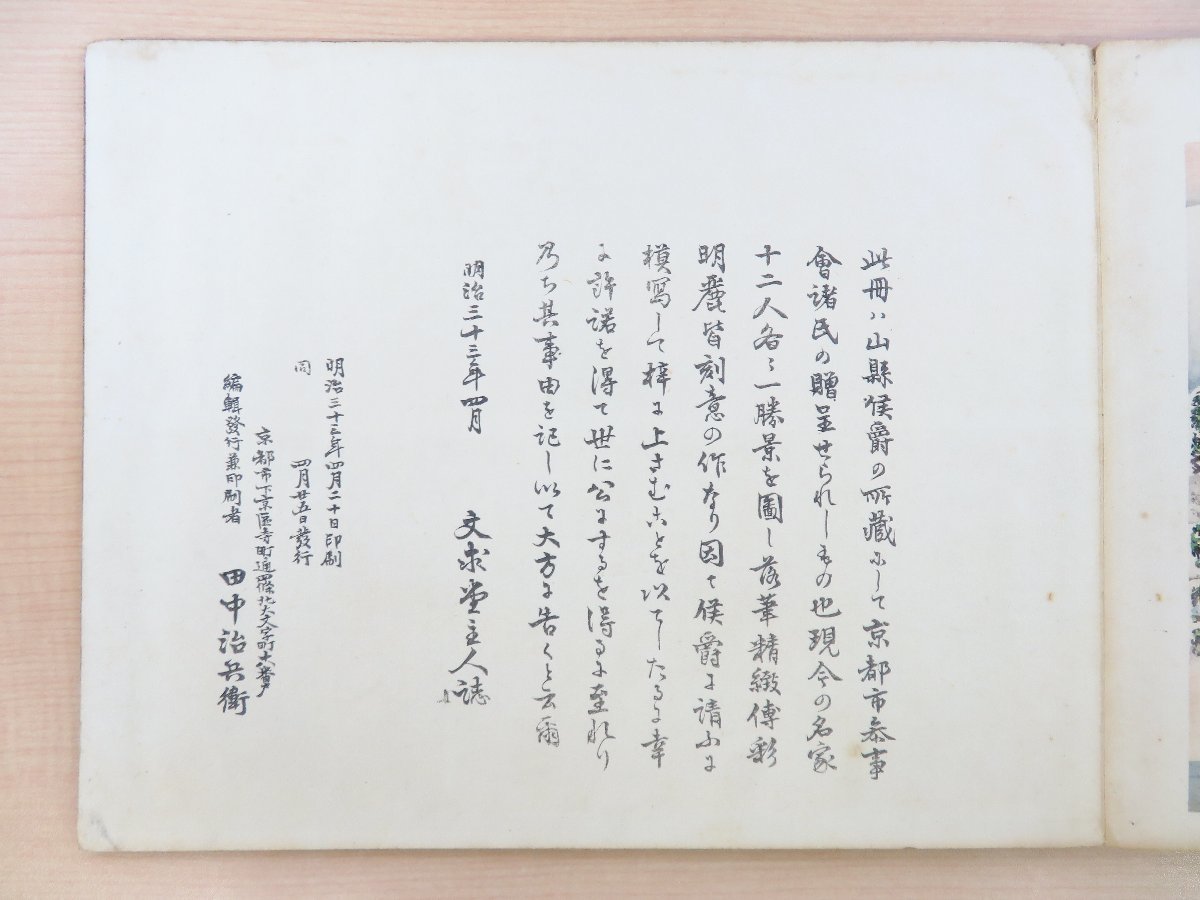 此冊ハ山縣侯爵の所藏にして京都市参事
會諸氏の贈呈せられしもの也現今の名家
十二人各〻一勝景を圖し落筆精緻傅彩
明麗皆刻意の作なり因て侯爵に請ふに
模寫して梓に上さむことを以てしたるに幸
に許諾を得て世に公にするを得るに至れり
乃ち其事由を記し以て大方に告くと云爾
明治三十三年四月
文求堂主人誌
明治三十三年四月二十日印刷
同 四月廿五日發行
京都市下京區寺町通四條北大文字町大番戸
編輯發行兼印刷者 田中治兵衛